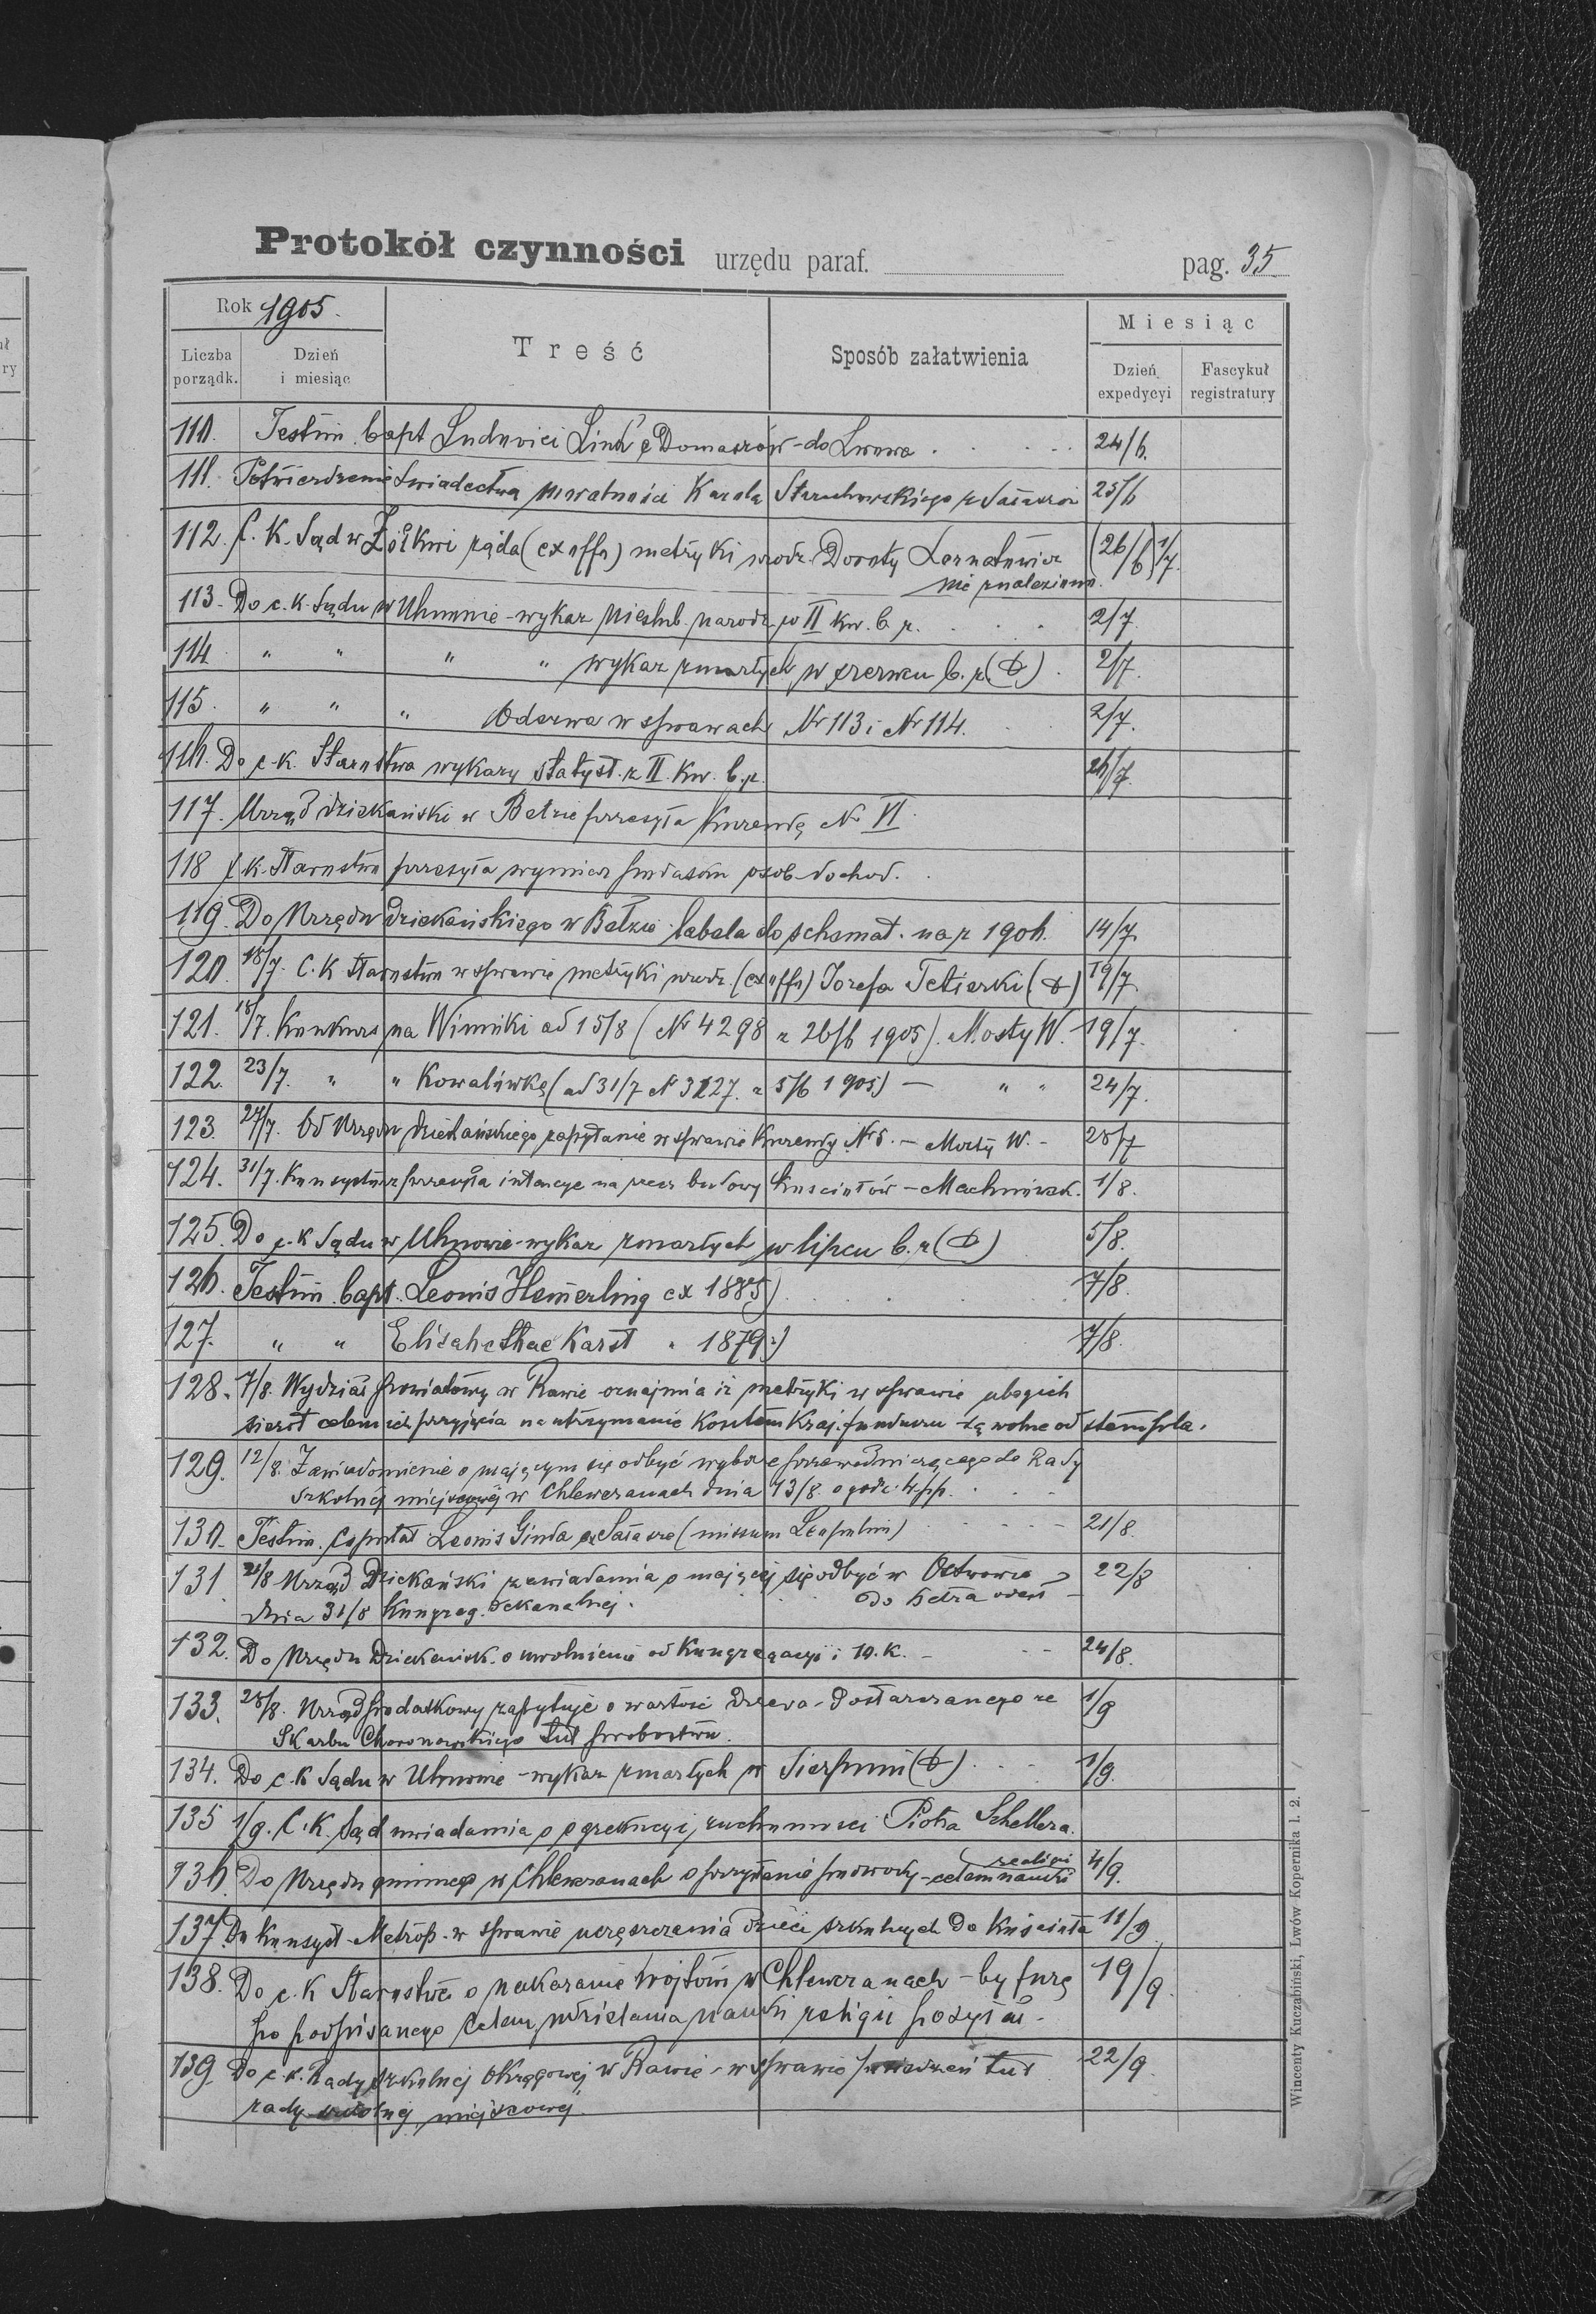 Protokół czynności urzędu paraf. pag. 35
Rok 1905.
Liczba porządk.
Dzień i miesiąc
Treść
Sposób załatwienia
Miesiąc
Dzień expedycyi
Fascykuł registratury
110. Testim. bapt Ludovici Link Domaszów - do Lwowa 24/6.
111. Potwierdzenie świadectwa moralności Karola 25/6
112. C. K. Sąd w Żółkwi żąda (ex offo) metryki urodz. Doroty (26/6) 1/7.
nie znaleziono.
113. Do c. k. Sądu w Uhnowie - wykaz nieślub. narodz. w II kw. b r. 2/7
114 " " " " wykaz zmarłych w czerwcu b. r. 2/7.
115. " " " Odezwa w sprawach Nr 113 i Nr 114. 2/7.
116. Do c. k. Starostwa wykazy statyst. z II. kw. b. r.
117. Urząd dziekański w Bełzie przesyła kurendę N. VI
118 c. k. Starostwo przesyła wymiar podatku osob. dochod.
119. Do Urzędu dziekańskiego w Bełzie tabela do schemat. na r 1906. 14/7.
120. 18/7. C. K Starostwo w sprawie metryki urodz. (ex offo) Józefa 19/7.
121. 18/7. Konkurs na Winniki ad 15/8 (No 4298 z 26/6 1905). Mosty W. 19/7.
122. 23/7. " " Kowalówkę (ad 31/7 N 3127. z 5/6 1905) — " " 24/7.
123. 24/7. Od Urzędu dziekańskiego zapytanie w sprawie kurendy No 5. — Mosty W. - 25/7
124. 31/7. Konsystorz przesyła na rzecz budowy kościołów - 1/8.
125. Do c. k Sądu w Uhnowie - wykaz zmarłych w lipcu b. r 5/8.
126. Testim. bapt. Leonis Hemerling ex 1885) 7/8.
127. " " Elisabethae Karst " 1879.) 7/8.
128. 7/8. Wydział powiatowy w Rawie oznajmia iż metryki w sprawie ubogich
sierót celem ich przyjęcia na utrzymanie kosztem kraj. funduszu są wolne od stempla.
129. 12/8. Zawiadomienie o mającym się odbyć wyborze przewodniczącego do Rady
szkolnej miejscowej w Chlewczanach dnia 13/8 o godz. 4. pp.
130. Testim. copulat Leonis Ginda ex Sałasze (missum Leopolim) 21/8.
131 21/8 Urząd Dziekański zawiadamia o mającej się odbyć w 22/8
dnia 31/8 Kongreg. dekanalnej.
132. Do Urzędu Dziekańsk. o uwolnienie od Kongregacyi 24/8.
133. 28/8. Urząd podatkowy zapytuje o wartość drzewa - dostarczanego ze 1/9
Skarbu Choronowskiego tut probostwu.
134. Do c. k Sądu w Uhnowie - wykaz zmarłych w Sierpniu 1/9.
135 1/9. C. K. Sąd uwiadamia o egzekucyi ruchomości Piotra Schellera.
136. Do Urzędu gminnego w Chlewczanach o przysłanie podwody - celem nauki religii 4/9.
137. Do Konsyst. Metrop. w sprawie uczęszczania dzieci szkolnych do Kościoła 11/9
138. Do c. k Starostwa o nakazanie wójtowi w Chlewczanach - by furę 19/9.
po podpisanego celem udzielania nauki religii posyłał.
139. Do c. k. Rady szkolnej okręgowej w Rawie - w sprawie posiedzeń tut 22/9.
rady szkolnej miejscowej.
Wincenty Kuczabiński, Lwów Kopernika l. 2.